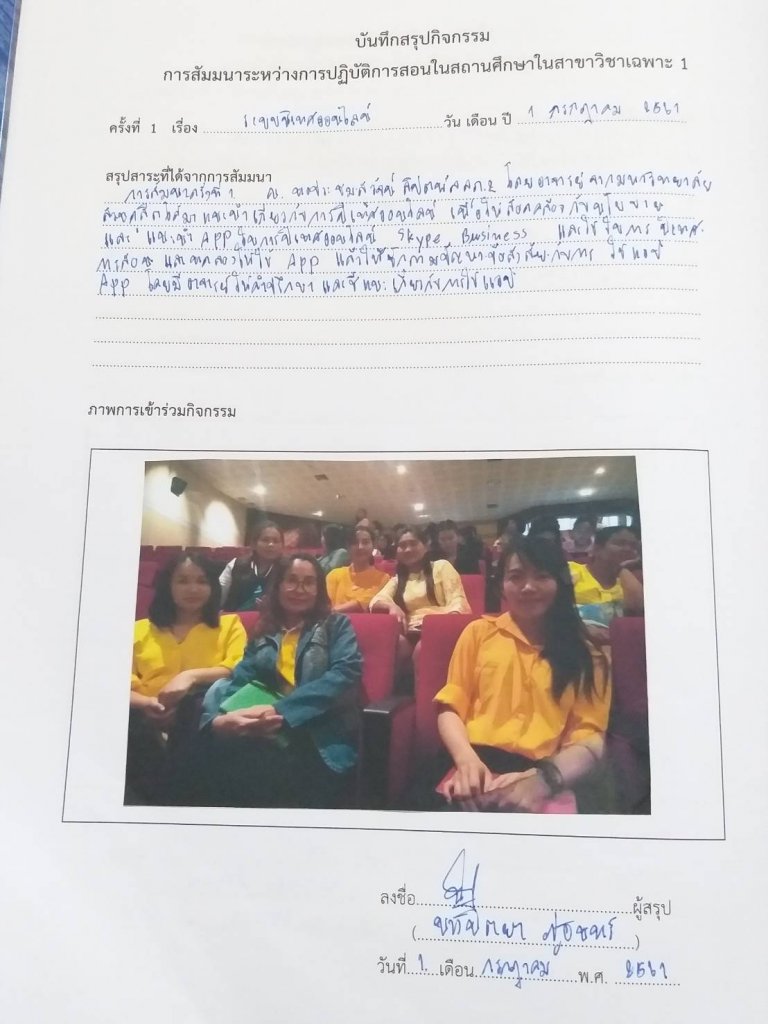 บันทึกสรุปกิจกรรม
การสัมมนาระหว่างการปฏิบัติการสอนในสถานศึกษาในสาขาวิชาเฉพาะ 1
ครั้งที่ 1 เรื่อง ระบบนิเทศออนไลน์ วัน เดือน ปี 1 กรกฎาคม 2561
สรุปสาระที่ได้จากการสัมมนา
การสัมมนาครั้งที่ 1 ณ. โดยอาจารย์ จากมหาวิทยาลัย
มาแนะนำเกี่ยวกับการนิเทศออนไลน์ เพื่อให้สอดคล้องกับนโยบาย
และ แนะนำ App ในการนิเทศออนไลน์ Skype Business และใช้ในการ นิเทศ
การสอน และทดลองให้ใช้ App
App โดยมีอาจารย์ให้คำปรึกษา และชี้แนะ เกี่ยวกับการใช้แอป
ภาพการเข้าร่วมกิจกรรม
ลงชื่อ ผู้สรุป
วันที่ 1 เดือน กรกฎาคม พ.ศ. 2561